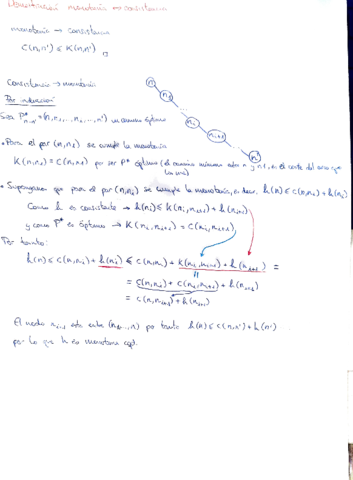 Demostración monotonía → consistencia
monotonía → consistencia
C(n,n') ≤ K(n,n')
n
n₁
nᵢ
nᵢ₊₁
n'
Consistencia → monotonía
Por inducción
Sea P*ₙ₋ₙ' = (n, n₁, ..., n') un camino óptimo
• Para el par (n,n₁) se cumple la monotonía
K(n,n₁) = C(n,n₁) por ser P* óptimo (el camino mínimo entre n y n₁ es el coste del arco que
• Supongamos que para el par (n,nᵢ) se cumple la monotonía, es decir, h(n) ≤ C(n,nᵢ) + h(nᵢ)
Como h es consistente → h(nᵢ) ≤ K(nᵢ,nᵢ₊₁) + h(nᵢ₊₁)
y como P* es óptimo → K(nᵢ,nᵢ₊₁) = C(nᵢ,nᵢ₊₁)
Por tanto:
h(n) ≤ C(n,nᵢ) + h(nᵢ) ≤ C(n,nᵢ) + K(nᵢ,nᵢ₊₁) + h(nᵢ₊₁) =
= C(n,nᵢ) + C(nᵢ,nᵢ₊₁) + h(nᵢ₊₁)
= C(n,nᵢ₊₁) + h(nᵢ₊₁)
El nodo nᵢ₊₁ está entre (n₁...,n') por tanto h(n) ≤ C(n,n') + h(n')
por lo que h es monótona cqd.